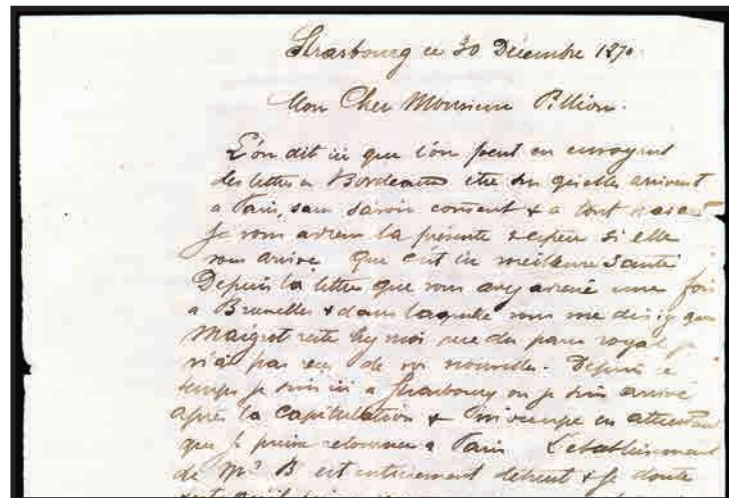 Strasbourg ce 30 Décembre 1870
Mon Cher Monsieur Pillion.
L'on dit ici que l'on peut en envoyant
des lettres à Bordeaux être sur qu'elles arrivent
a Paris, sans savoir comment & a tout hasard
Je vous adresse la présente & espère si elle
vous arrive que c'est en meilleure santé
Depuis la lettre que vous avez adressé une fois
a Bruxelles & dans laquelle vous me disiez que
Maigrot reste chez moi rue du palais royal je
n'ai pas reçu de vos nouvelles. Depuis ce
temps je suis ici a Strasbourg ou je suis arrivé
après la Capitulation & m'occupe en attendant
que je puisse retourner a Paris L'etablissement
de Mr. B est entierement détruit & je doute